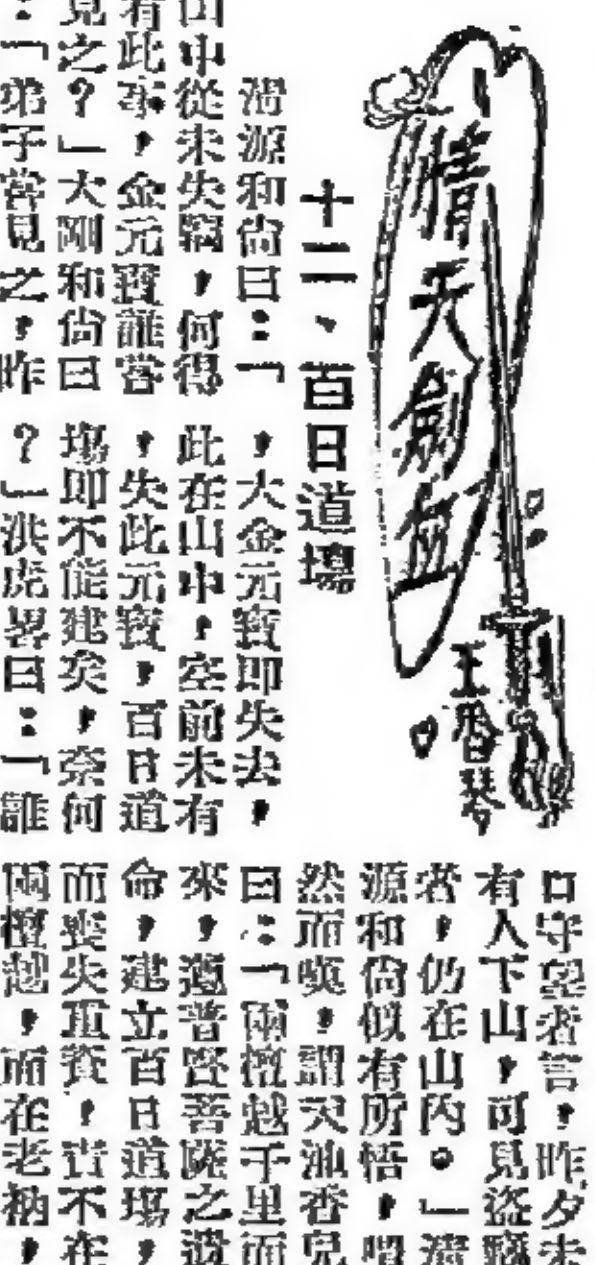 情天劍血
王香琴
十二、百日道場
清源和尚曰:「
山中從未失竊,何得
有此事,金元寶誰嘗
見之?」大剛和尚曰
:「弟子嘗見之,昨
,大金元寶即失去,
此在山中,空前未有
,失此元寶,百日道
場即不能建矣,奈何
?」洪虎畧曰:「誰
口守望者言,昨夕未
有人下山,可見盜竊
者,仍在山內。」清
源和尚似有所悟,喟
然而嘆,謂天油香兒
曰:「兩檀越千里而
來,遵普賢菩薩之遺
命,建立百日道場,
而喪失重資,責不在
兩檀越,而在老衲,